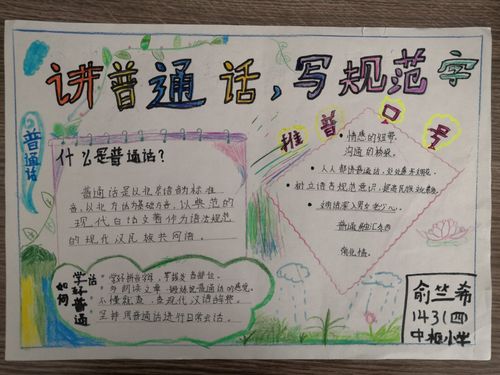 讲普通话,写规范字
普通话
什么是普通话?
普通话是以北京语的标准
音,以北方话为基础方言,以典范的
现代白话文著作为语法规范
的现代汉民族共同语。
如何学好普通话
学好拼音字母,掌握发音部位。
多朗读文章,锻炼说普通话的感觉。
不懂就查,查现代汉语辞典。
坚持用普通话进行日常会话。
推普口号
• 情感的纽带,
沟通的桥梁。
• 人人都讲普通话,
• 树立语言规范意识,提高民族
普通
俞竺希
143(四)
中枢小学